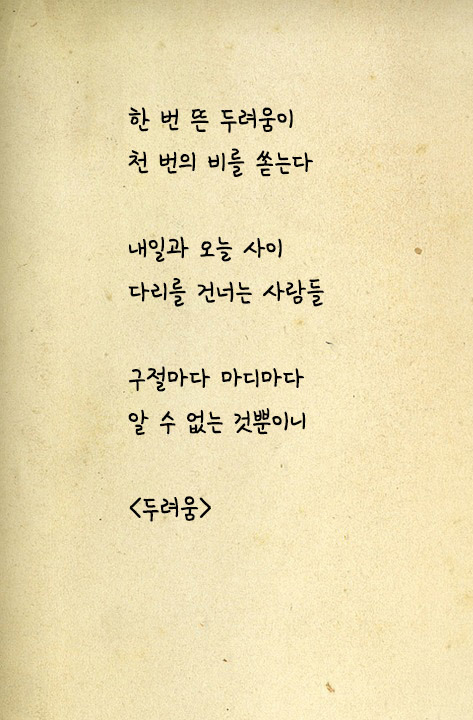 한 번 뜬 두려움이
천 번의 비를 쏟는다
내일과 오늘 사이
다리를 건너는 사람들
구절마다 마디마다
알 수 없는 것뿐이니
<두려움>